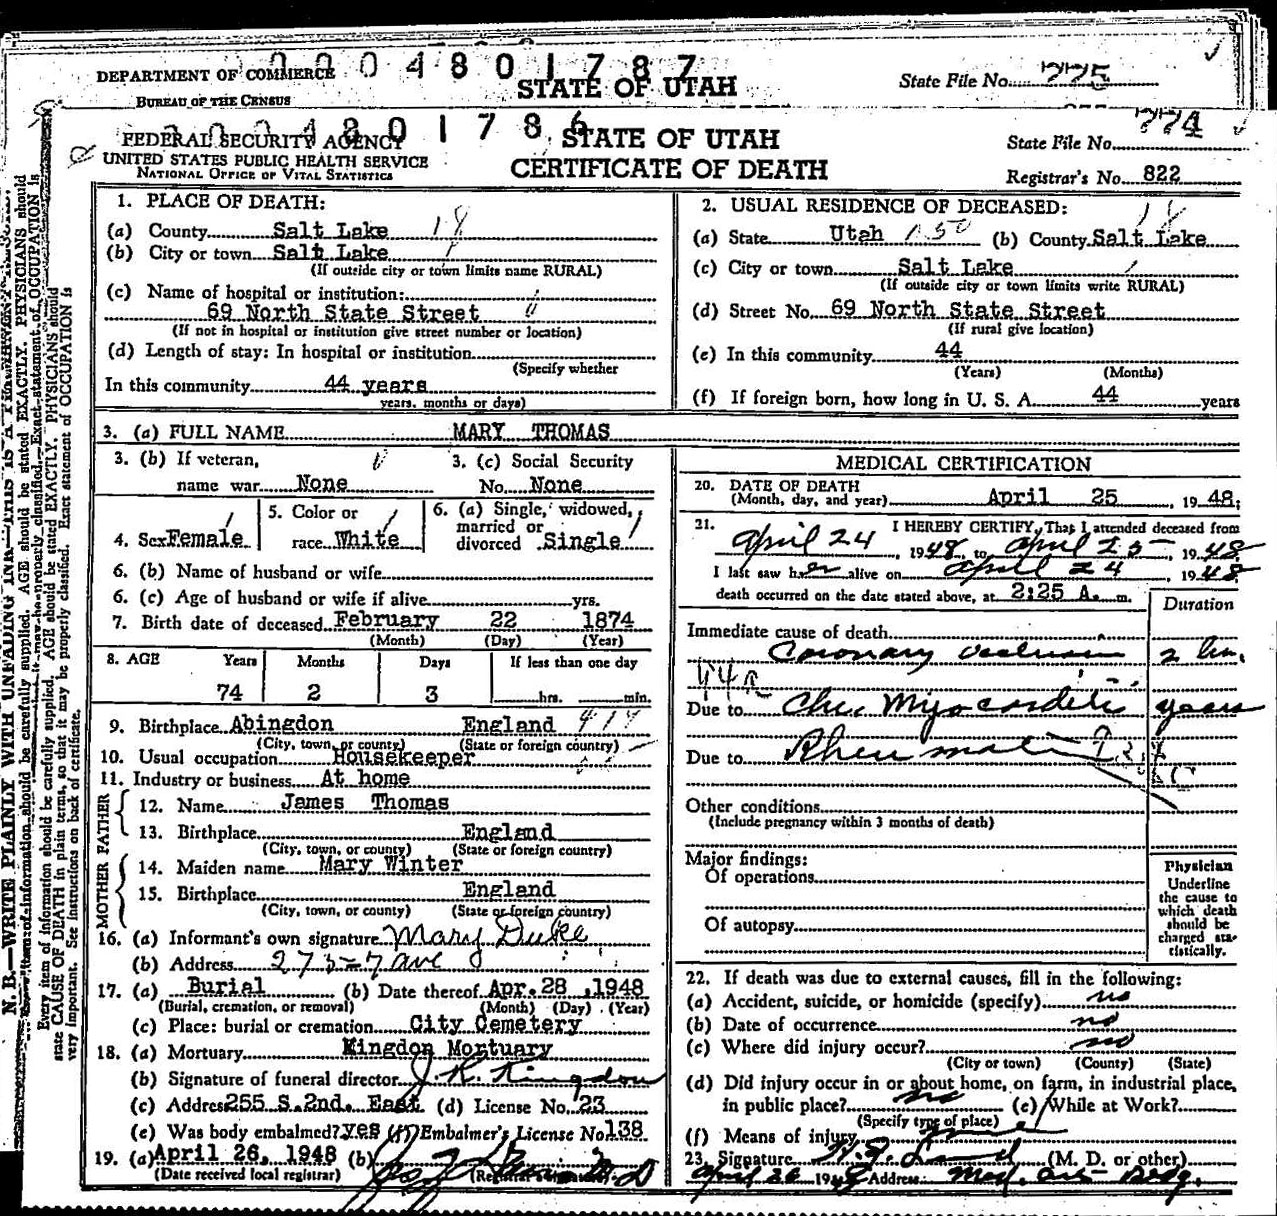 DEPARTMENT OF COMMERCE 0 0 4 8 0 1 7 8 7 State File No. 775
BUREAU OF THE CENSUS STATE OF UTAH
FEDERAL SECURITY AGENCY 4 8 0 1 7 8 6 STATE OF UTAH State File No. 774
UNITED STATES PUBLIC HEALTH SERVICE CERTIFICATE OF DEATH
NATIONAL OFFICE OF VITAL STATISTICS Registrar's No. 822
1. PLACE OF DEATH:
(a) County Salt Lake 18
(b) City or town Salt Lake
(If outside city or town limits name RURAL)
(c) Name of hospital or institution:
69 North State Street
(If not in hospital or institution give street number or location)
(d) Length of stay: In hospital or institution
(Specify whether
In this community 44 years
years, months or days)
2. USUAL RESIDENCE OF DECEASED:
(a) State Utah 150 (b) County Salt Lake 18
(c) City or town Salt Lake
(If outside city or town limits write RURAL)
(d) Street No. 69 North State Street
(If rural give location)
(e) In this community 44
(Years) (Months)
(f) If foreign born, how long in U. S. A. 44 years
3. (a) FULL NAME MARY THOMAS
3. (b) If veteran, 3. (c) Social Security
name war None No. None
4. Sex Female 5. Color or race White 6. (a) Single, widowed, married or divorced Single
6. (b) Name of husband or wife
6. (c) Age of husband or wife if alive yrs.
7. Birth date of deceased February 22 1874
(Month) (Day) (Year)
8. AGE Years Months Days If less than one day
74 2 3 hrs. min.
9. Birthplace Abingdon England
(City, town, or county) (State or foreign country)
10. Usual occupation Housekeeper
11. Industry or business At home
FATHER
12. Name James Thomas
13. Birthplace England
(City, town, or county) (State or foreign country)
MOTHER
14. Maiden name Mary Winter
15. Birthplace England
(City, town, or county) (State or foreign country)
16. (a) Informant's own signature Mary Duke
(b) Address 273-7 ave
17. (a) Burial (b) Date thereof Apr. 28, 1948
(Burial, cremation, or removal) (Month) (Day) (Year)
(c) Place: burial or cremation City Cemetery
18. (a) Mortuary Kingdon Mortuary
(b) Signature of funeral director J. R. Kingdon
(c) Address 255 S. 2nd. East (d) License No. 23
(e) Was body embalmed? yes (f) Embalmer's License No. 138
19. (a) April 26, 1948 (b)
(Date received local registrar)
MEDICAL CERTIFICATION
20. DATE OF DEATH
(Month, day, and year) April 25, 1948;
21. I HEREBY CERTIFY, That I attended deceased from
April 24, 1948, to April 25, 1948
I last saw her alive on April 24, 1948
death occurred on the date stated above, at 2:25 A. m.
Duration
Immediate cause of death
Coronary occlusion 2 hrs.
Due to Chr. Myocarditis years
Due to
Other conditions
(Include pregnancy within 3 months of death)
Major findings:
Of operations
Of autopsy
Physician
Underline
the cause to
which death
should be
charged sta-
tistically.
22. If death was due to external causes, fill in the following:
(a) Accident, suicide, or homicide (specify) no
(b) Date of occurrence no
(c) Where did injury occur? no
(City or town) (County) (State)
(d) Did injury occur in or about home, on farm, in industrial place,
in public place? no (e) While at Work?
(Specify type of place)
(f) Means of injury
23. Signature (M. D. or other)
April 26 1948 Address: Med. Arts Bldg.
N. B.—WRITE PLAINLY WITH UNFADING INK—THIS IS A
Every item of information should be carefully supplied. AGE should be stated EXACTLY. PHYSICIANS should
state CAUSE OF DEATH in plain terms, so that it may be properly classified. Exact statement of OCCUPATION is
very important. See instructions on back of certificate.